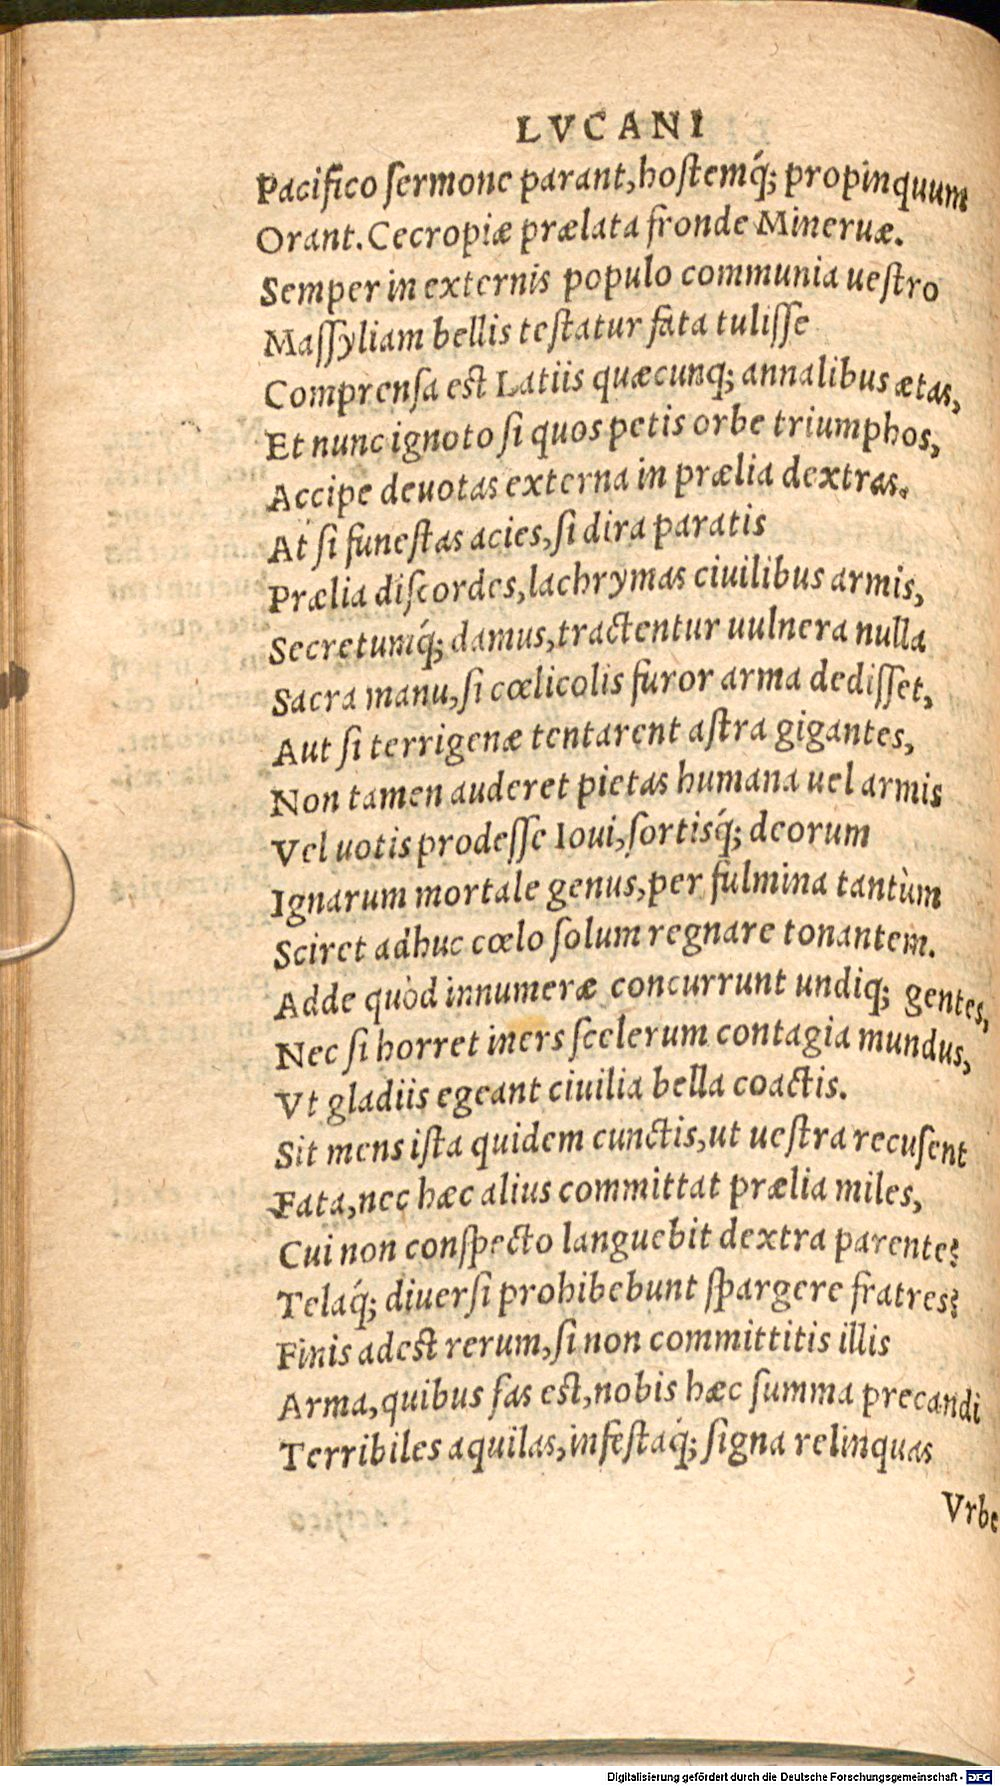 LVCANI
Pacifico ſermone parant, hoſtemq́; propinquum
Orant. Cecropiæ prælata fronde Mineruæ.
Semper in externis populo communia ueſtro
Maſſyliam bellis teſtatur fata tuliſſe
Comprenſa est Latiis quæcunq; annalibus ætas,
Et nunc ignoto ſi quos petis orbe triumphos,
Accipe deuotas externa in prælia dextras.
At ſi funeſtas acies, ſi dira paratis
Prælia diſcordes, lachrymas ciuilibus armis,
Secretumq́; damus, tractentur uulnera nulla
Sacra manu, ſi cœlicolis furor arma dediſſet,
Aut ſi terrigenæ tentarent aſtra gigantes,
Non tamen auderet pietas humana uel armis
Vel uotis prodeſſe Ioui, ſortisq́; deorum
Ignarum mortale genus, per fulmina tantùm
Sciret adhuc cœlo ſolum regnare tonantem.
Adde quòd innumeræ concurrunt undiq; gentes,
Nec ſi horret iners ſcelerum contagia mundus,
Vt gladiis egeant ciuilia bella coactis.
Sit mens iſta quidem cunctis, ut ueſtra recuſent
Fata, nec hæc alius committat prælia miles,
Cui non conſpecto languebit dextra parente?
Telaq́; diuerſi prohibebunt ſpargere fratres?
Finis adest rerum, ſi non committitis illis
Arma, quibus fas est, nobis hæc ſumma precandi
Terribiles aquilas, infeſtaq́; ſigna relinquas
Vrbe
Digitalisierung gefördert durch die Deutsche Forschungsgemeinschaft - DFG